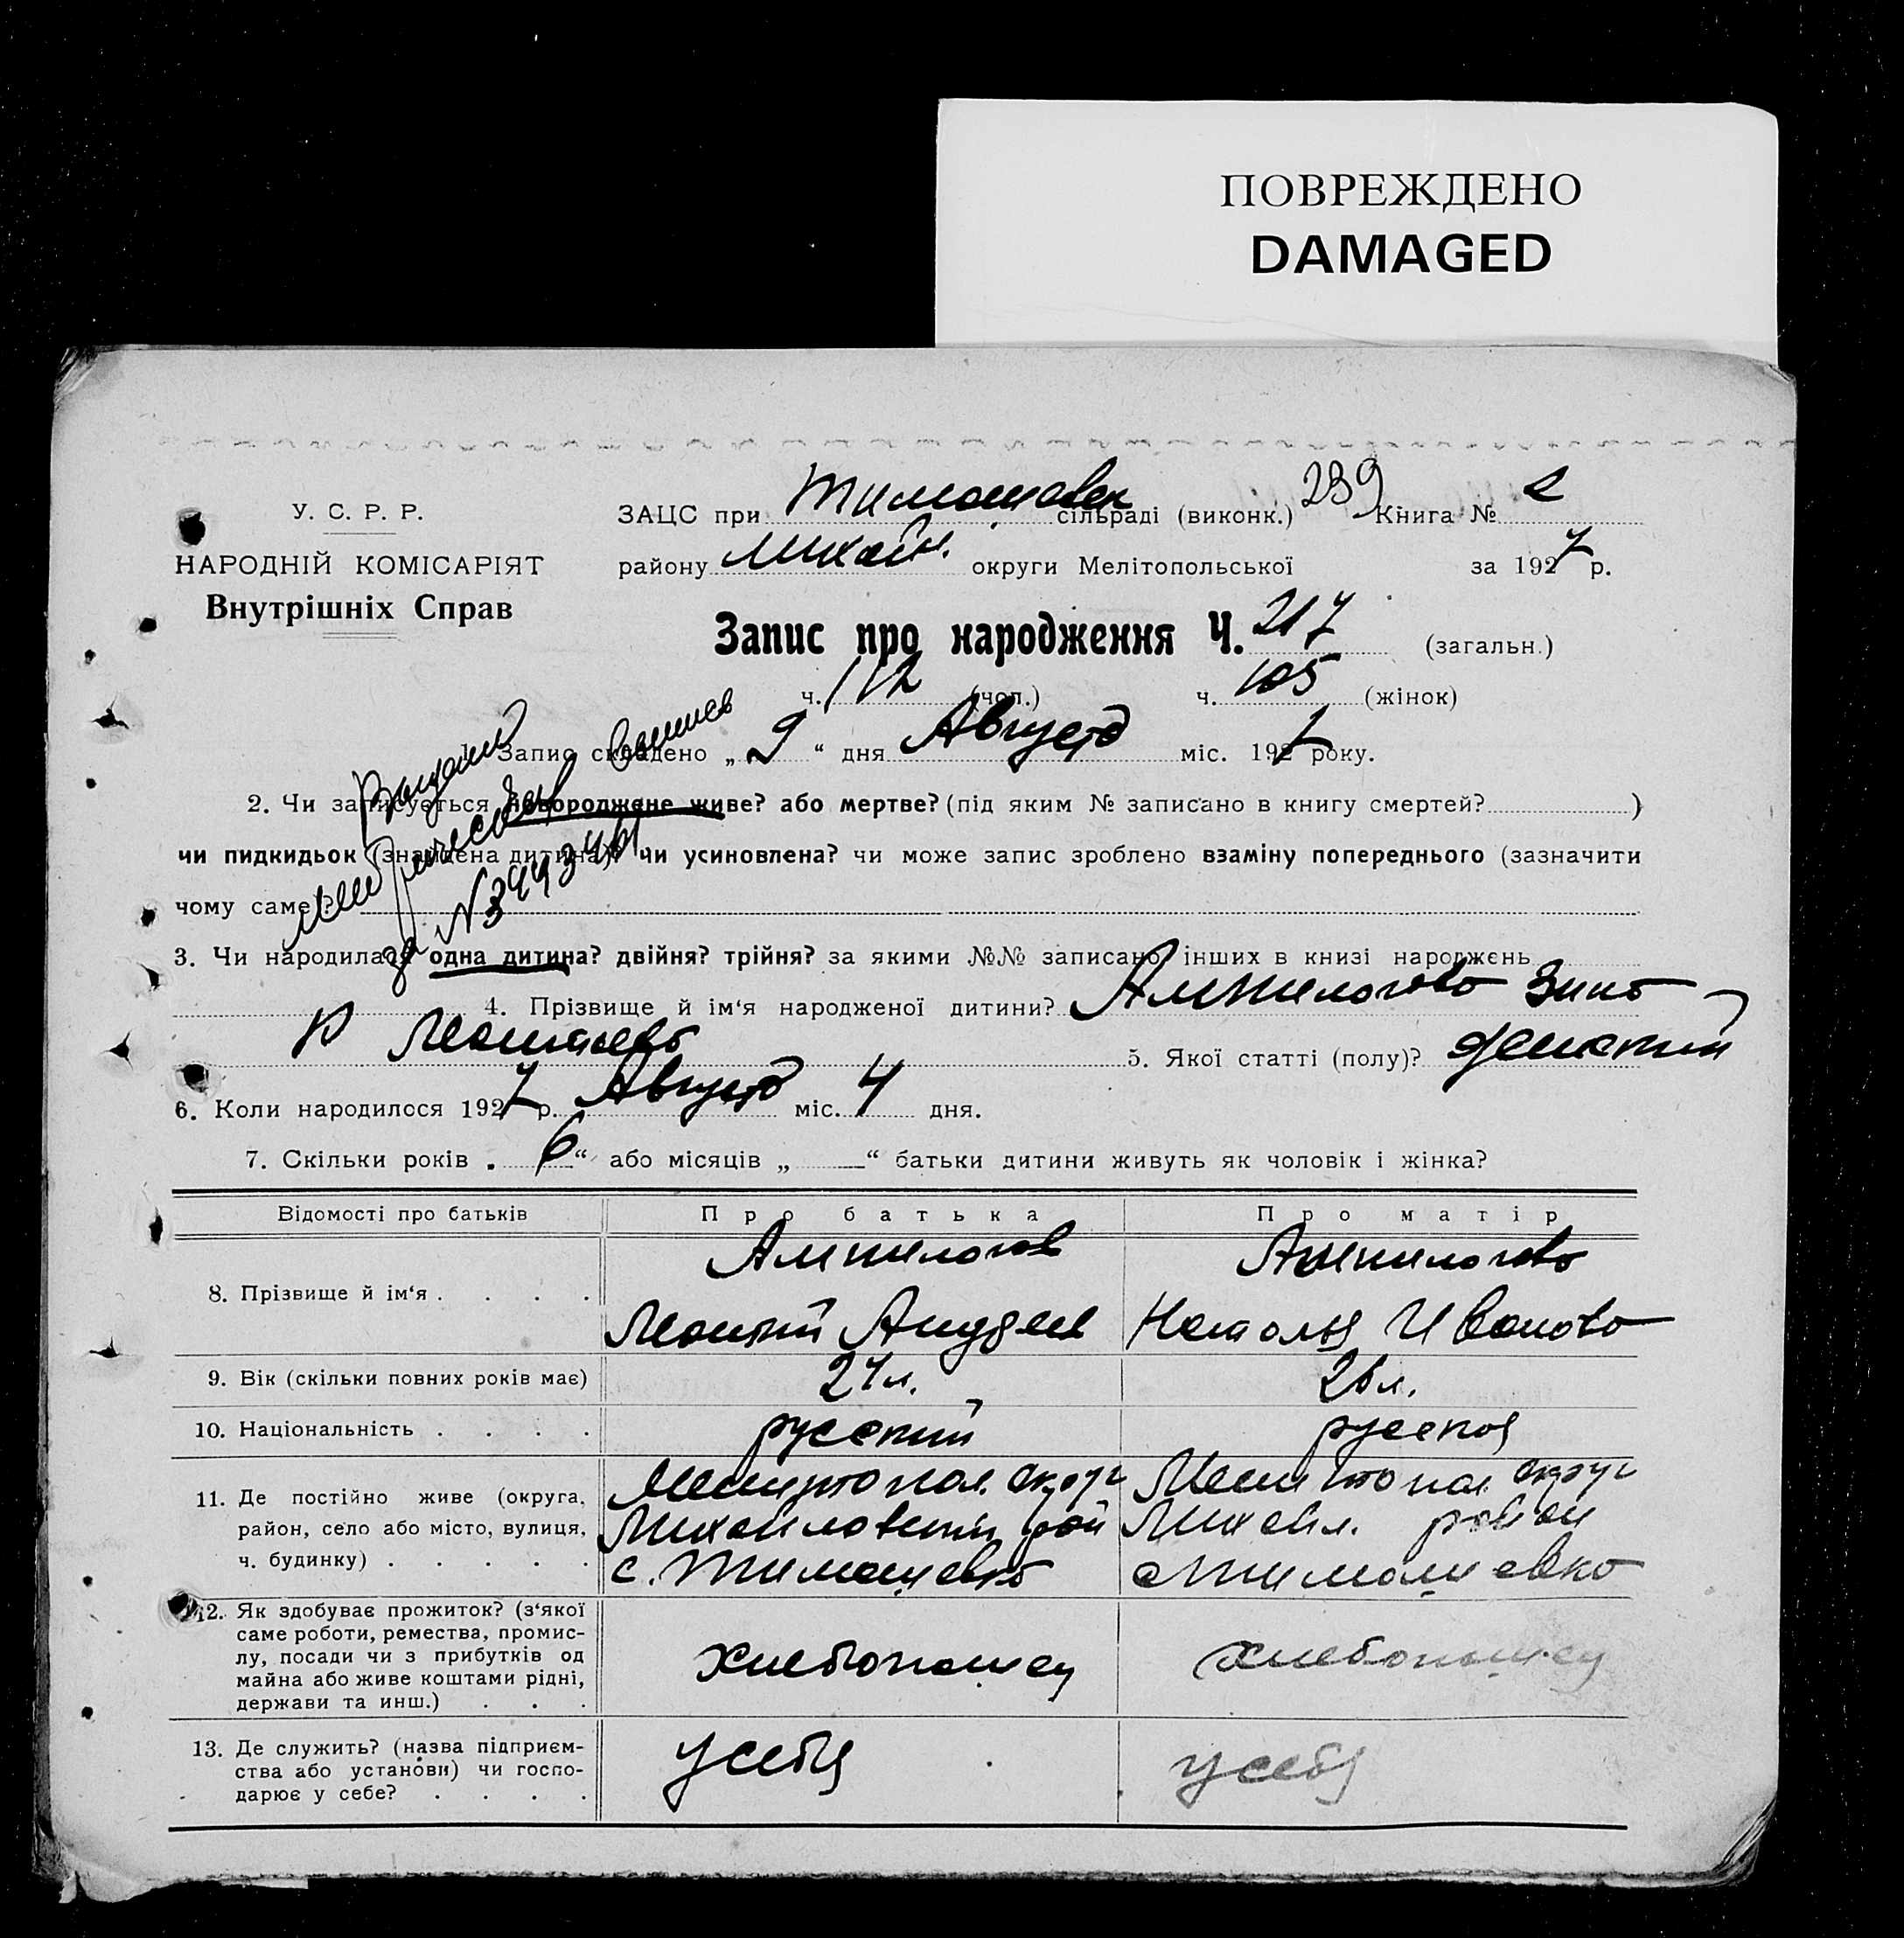 ПОВРЕЖДЕНО
DAMAGED
У. С. Р. Р.
НАРОДНІЙ КОМІСАРІЯТ
Внутрішніх Справ
ЗАЦС при Тимошовск сільраді (виконк.) 239 Книга № 2
району Михайл. округи Мелітопольської за 1927 р.
Запис про народження Ч. 217 (загальн.)
ч. 112 (чол.) ч. 105 (жінок)
1. Запис складено „ 9 “ дня Августа міс. 1927 року.
2. Чи записується новороджене живе? або мертве? (під яким № записано в книгу смертей? )
чи пидкидьок (знайдена дитина)? чи усиновлена? чи може запис зроблено взаміну попереднього (зазначити
чому саме)?
за №
3. Чи народилася одна дитина? двійня? трійня? за якими №№ записано інших в книзі народжень
4. Прізвище й ім‘я народженої дитини? Ампилогова Зина
5. Якої статті (полу)? Женский
6. Коли народилося 1927 р. Августа міс. 4 дня.
7. Скільки років „ 6 “ або місяців „ — “ батьки дитини живуть як чоловік і жінка?
Відомості про батьків Про батька Про матір
8. Прізвище й ім‘я . . . . Ампилогов Ампилогова
Андрее Наталья Иванова
9. Вік (скільки повних років має) 27 л. 26 л.
10. Національність . . . . русский руская
11. Де постійно живе (округа, Мелитопол. округ Мелитопол. округ
район, село або місто, вулиця, Михайловский рай Михайл. район
ч. будинку) . . . . . с. Тимошевка с Тимошевка
12. Як здобуває прожиток? (з‘якої
саме роботи, ремества, промис-
лу, посади чи з прибутків од хлебопашец хлебопашец
майна або живе коштами рідні,
держави та инш.) . . .
13. Де служить? (назва підприєм-
ства або установи) чи госпо- у себя у себя
дарює у себе? . . . .